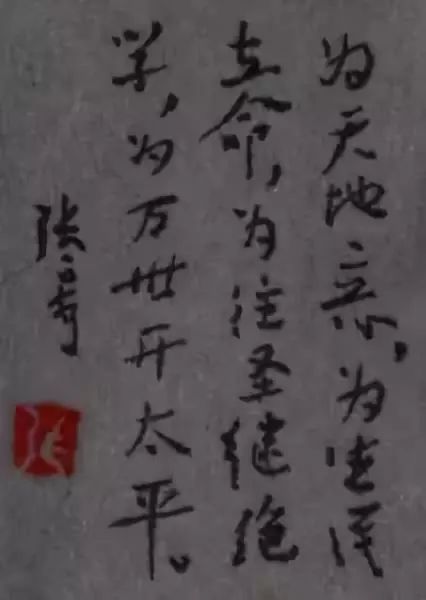 为天地立心,为生民
立命,为往圣继绝
学,为万世开太平。
张